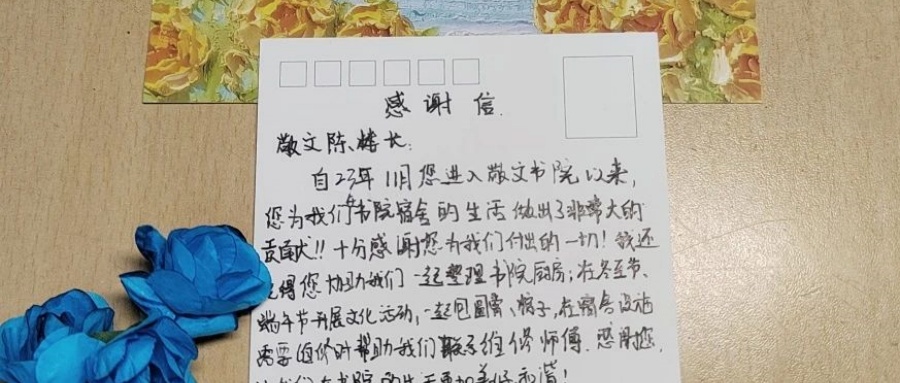 感谢信
敬文陈楼长:
自23年11月您进入敬文书院以来,
您为我们书院宿舍的生活做出了非常大的
贡献!!十分感谢您为我们付出的一切!我还
记得您协助我们一起整理书院厨房;在冬至节、
端午节开展文化活动,一起包圆宵、粽子,在宿舍设施
需要维修时帮助我们联系维修师傅.感谢您,
让我们在书院的生活更加美好和谐!